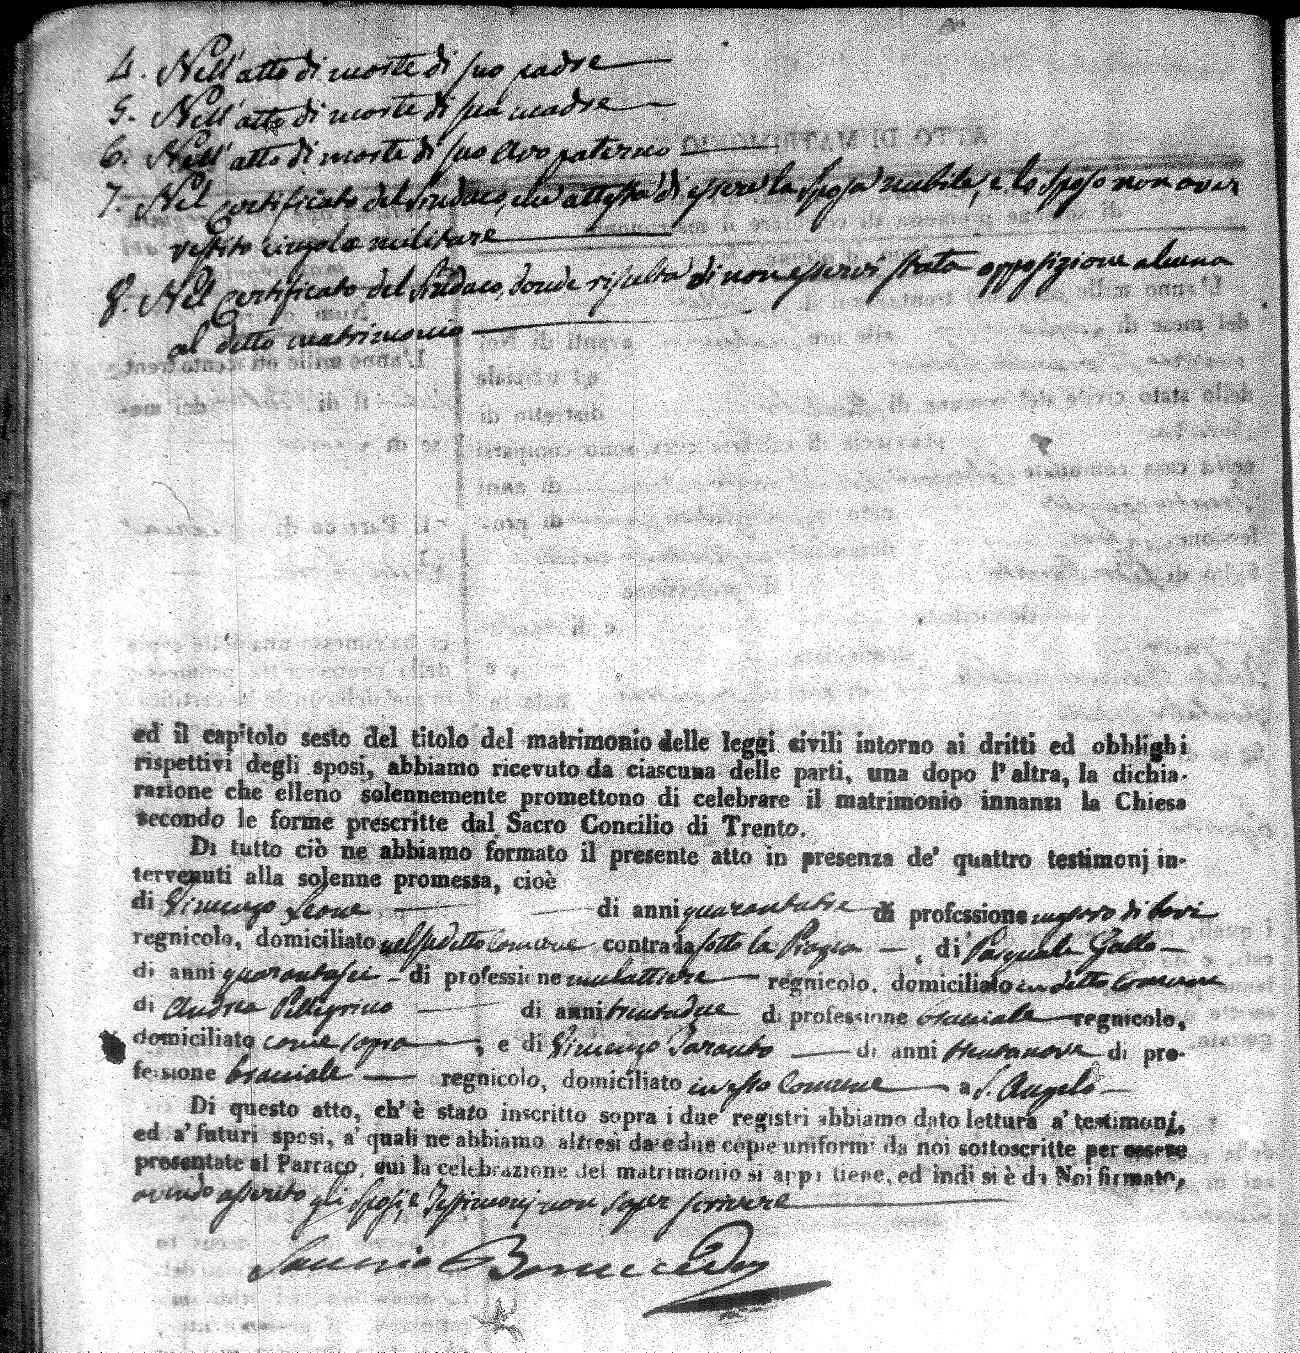 4. Nell'atto di morte di suo padre
5. Nell'atto di morte di sua madre
6. Nell'atto di morte di suo Avo paterno
7. Nel Certificato del Sindaco, che attesta di essere la sposa nubile, e lo sposo non aver
vestito cingolo militare
8. Nel Certificato del Sindaco, donde risulta di non esservi stata opposizione alcuna
al detto matrimonio
ed il capitolo sesto del titolo del matrimonio delle leggi civili intorno ai dritti ed obblighi
rispettivi degli sposi, abbiamo ricevuto da ciascuna delle parti, una dopo l'altra, la dichia-
razione che elleno solennemente promettono di celebrare il matrimonio innanzi la Chiesa
secondo le forme prescritte dal Sacro Concilio di Trento.
Di tutto ciò ne abbiamo formato il presente atto in presenza de' quattro testimonj in-
tervenuti alla solenne promessa, cioè
di Vincenzo Leone di anni quarantatre di professione di bovi
regnicolo, domiciliato nel sudetto Comune contrada sotto la Piazza, di Pasquale Gallo
di anni quarantasei di professione mulattiere regnicolo, domiciliato in detto Comune
di Andrea Pellegrino di anni trentadue di professione bracciale regnicolo,
domiciliato come sopra, e di Vincenzo Taranto di anni trentanove di pro-
fessione bracciale regnicolo, domiciliato in esso Comune a S. Angelo
Di questo atto, ch'è stato inscritto sopra i due registri abbiamo dato lettura a' testimonj,
ed a' futuri sposi, a' quali ne abbiamo altresì date due copie uniformi da noi sottoscritte per essere
presentate al Parroco, cui la celebrazione del matrimonio si appartiene, ed indi si è da Noi firmato,
avendo asserito gli sposi, e Testimonj non saper scrivere